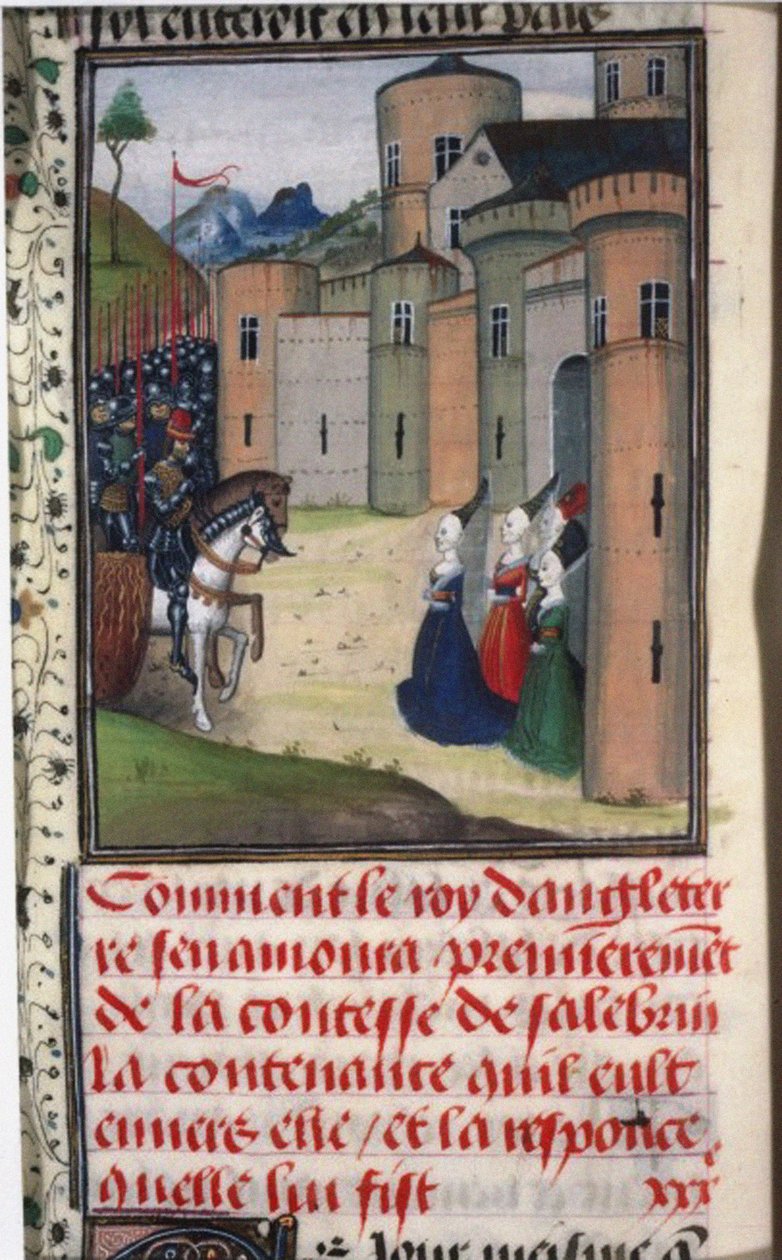 soy entreroit en leur
Comment le roy dangleter
re senamoura premieremēt
de la contesse de salebrin
la contenance quil eult
enuers elle / et la responce
quelle luy fist xxxᵉ
Jour meisme